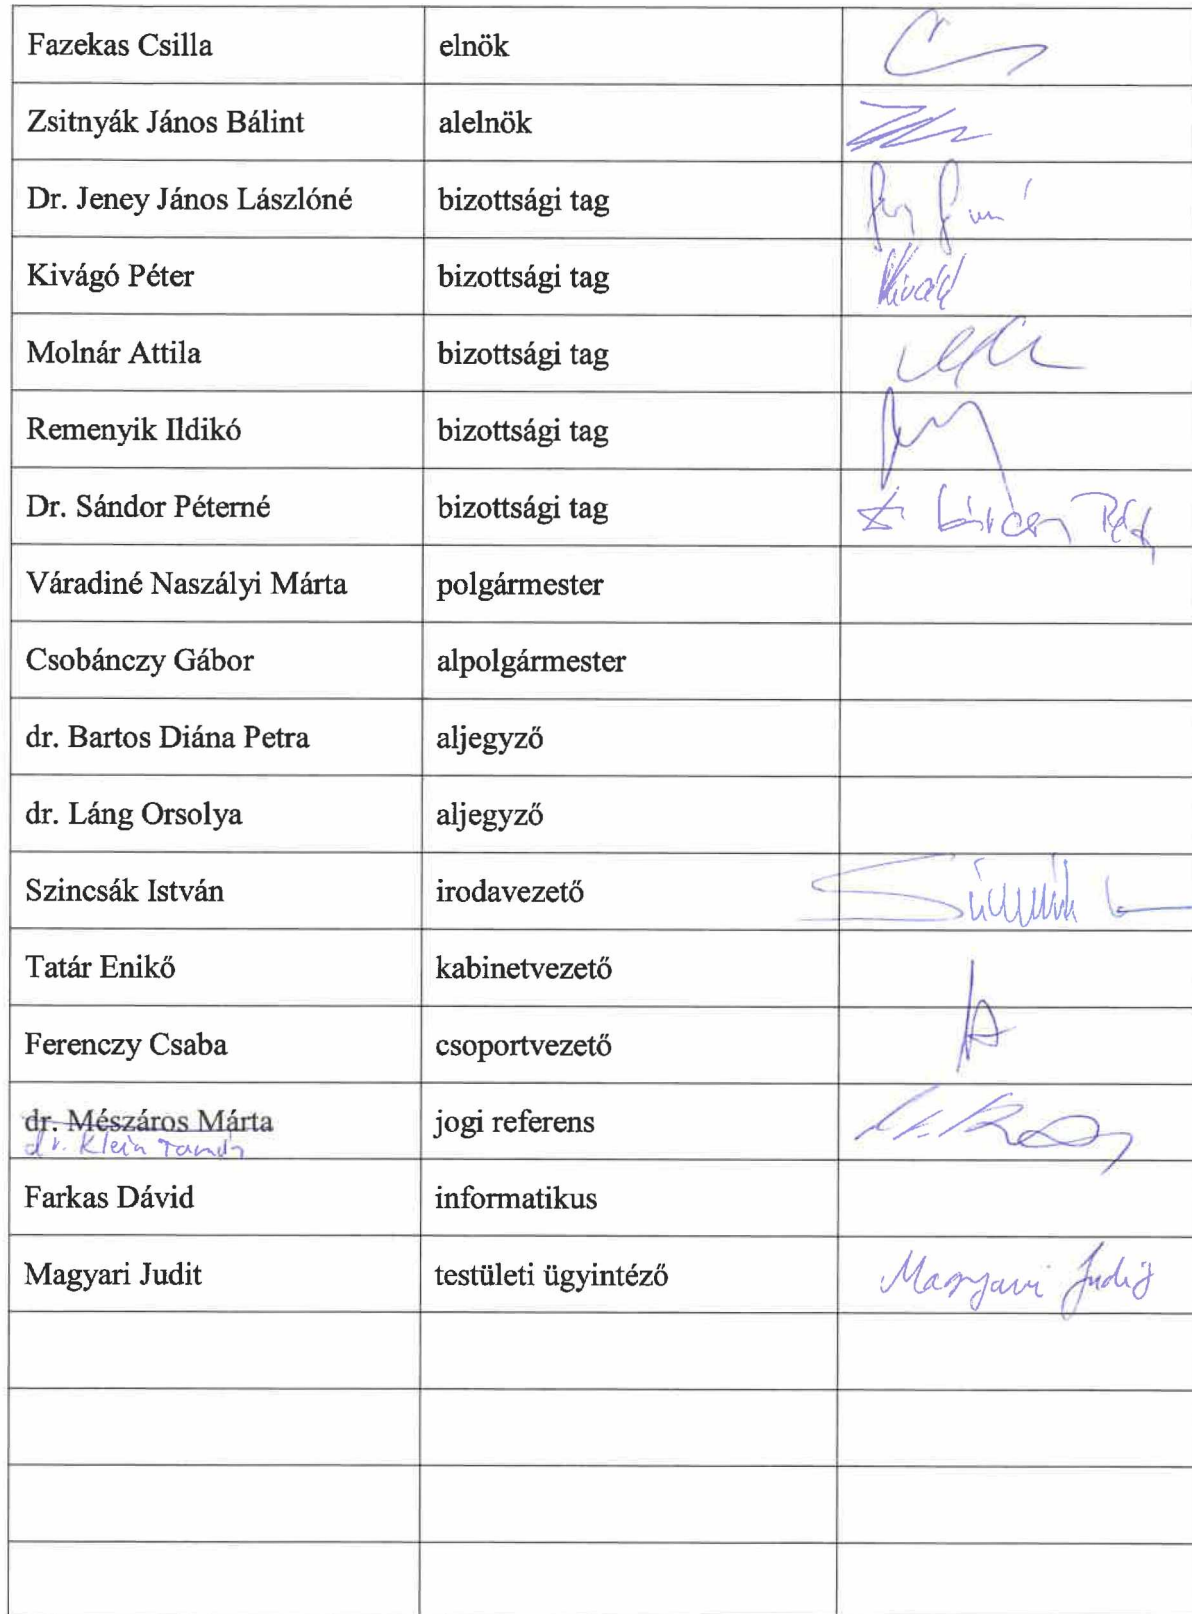 Fazekas Csilla elnök
Zsitnyák János Bálint alelnök
Dr. Jeney János Lászlóné bizottsági tag
Kivágó Péter bizottsági tag
Molnár Attila bizottsági tag
Remenyik Ildikó bizottsági tag
Dr. Sándor Péterné bizottsági tag
Váradiné Naszályi Márta polgármester
Csobánczy Gábor alpolgármester
dr. Bartos Diána Petra aljegyző
dr. Láng Orsolya aljegyző
Szincsák István irodavezető
Tatár Enikő kabinetvezető
Ferenczy Csaba csoportvezető
dr. Mészáros Márta jogi referens
dr. Klein Tamás
Farkas Dávid informatikus
Magyari Judit testületi ügyintéző Magyari Judit